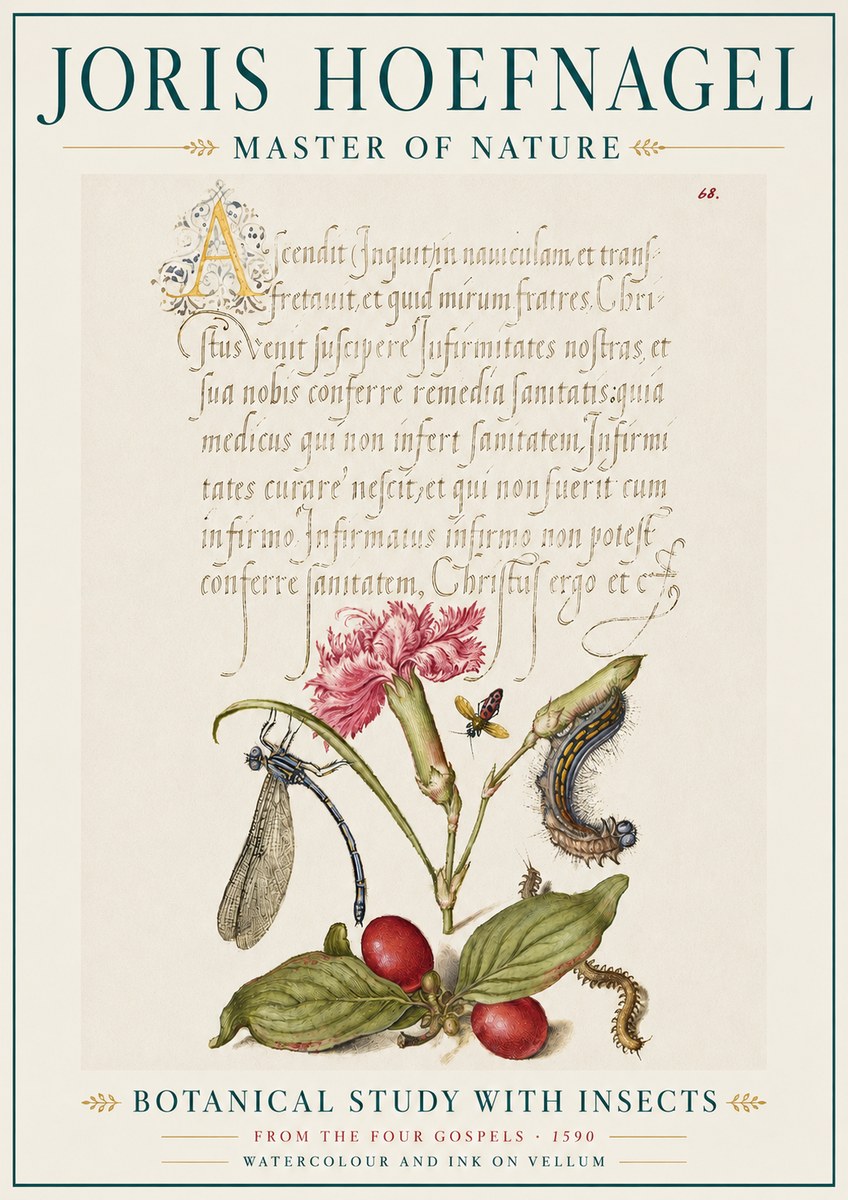 JORIS HOEFNAGEL
MASTER OF NATURE
68.
Ascendit (Inquit) in nauiculam, et trans-
fretauit, et quid mirum fratres, Chri-
stus venit suscipere Iufirmitates nostras, et
sua nobis conferre remedia sanitatis: quia
medicus qui non infert sanitatem, Infirmi
tates curare nescit, et qui non fuerit cum
infirmo Infirmatus infirmo non potest
conferre sanitatem, Christus ergo et c
BOTANICAL STUDY WITH INSECTS
FROM THE FOUR GOSPELS · 1590
WATERCOLOUR AND INK ON VELLUM